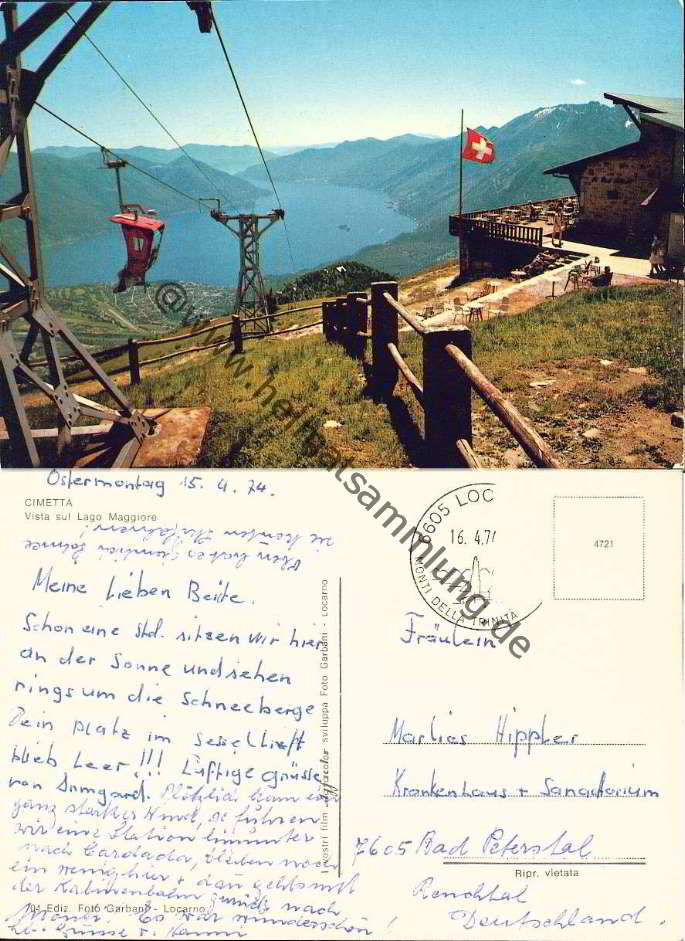 @www.heimatsammlung.de
Ostermontag 15. 4. 74.
CIMETTA
Vista sul Lago Maggiore
Oben hat es ziemlich Schnee
sie konnten Ski fahren!
Meine lieben Beide.
Schon eine Std. sitzen wir hier
an der Sonne und sehen
rings um die Schneeberge
Dein Platz im Sessellieft
blieb leer!!! Luftige Grüsse
von Irmgard. Plötzlich kam ein
ganz starker Wind, so fuhren
wir eine Station hinunter
nach Cardada, bleiben noch
ein wenig hier + dan gehts mit
der Kabinenbahn zurück nach
Monti. Es war wunderschön!
lb. Grüsse v. Hanni
701 Ediz. Foto Garbani - Locarno
I vostri film sviluppa Foto Garbani - Locarno
6605 LOC
16.4.74
MONTI DELLA TRINITÀ
4721
Fräulein
Marlies Hippler
Krankenhaus + Sanatorium
7605 Bad Peterstal
Ripr. vietata
Renchtal
Deutschland.